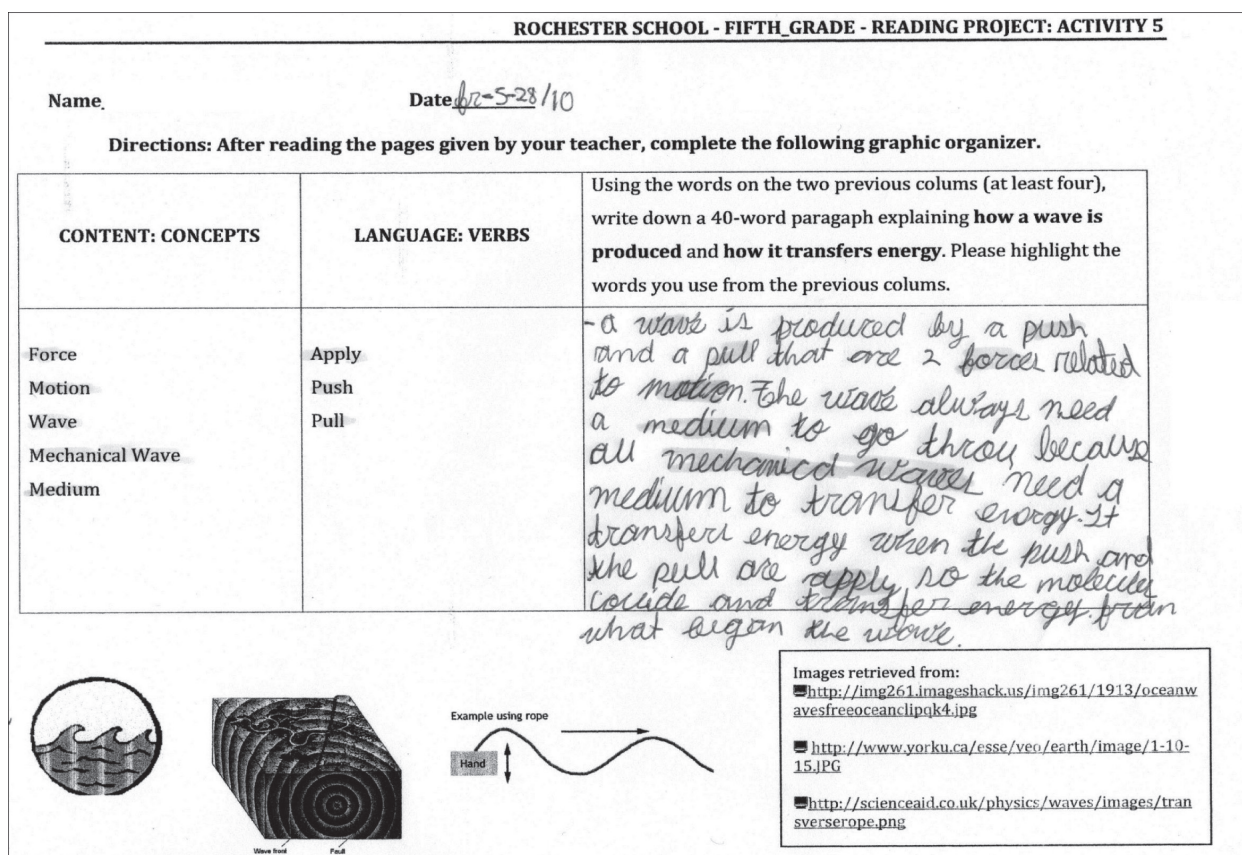 ROCHESTER SCHOOL - FIFTH_GRADE - READING PROJECT: ACTIVITY 5
Name
Date fr-5-28/10
Directions: After reading the pages given by your teacher, complete the following graphic organizer.
CONTENT: CONCEPTS
LANGUAGE: VERBS
Using the words on the two previous colums (at least four),
write down a 40-word paragaph explaining how a wave is
produced and how it transfers energy. Please highlight the
words you use from the previous colums.
Force
Motion
Wave
Mechanical Wave
Medium
Apply
Push
Pull
-a wave is produced by a push
and a pull that are 2 forces related
to motion. The wave always need
a medium to go throu because
all mechanical waves need a
medium to transfer energy. It
transfers energy when the push and
the pull are apply, so the molecules
collide and transfer energy from
what began the wave.
Example using rope
Hand
Wave front
Fault
Images retrieved from:
http://img261.imageshack.us/img261/1913/oceanw
avesfreeoceanclipqk4.jpg
http://www.yorku.ca/esse/veo/earth/image/1-10-
15.JPG
http://scienceaid.co.uk/physics/waves/images/tran
sverserope.png